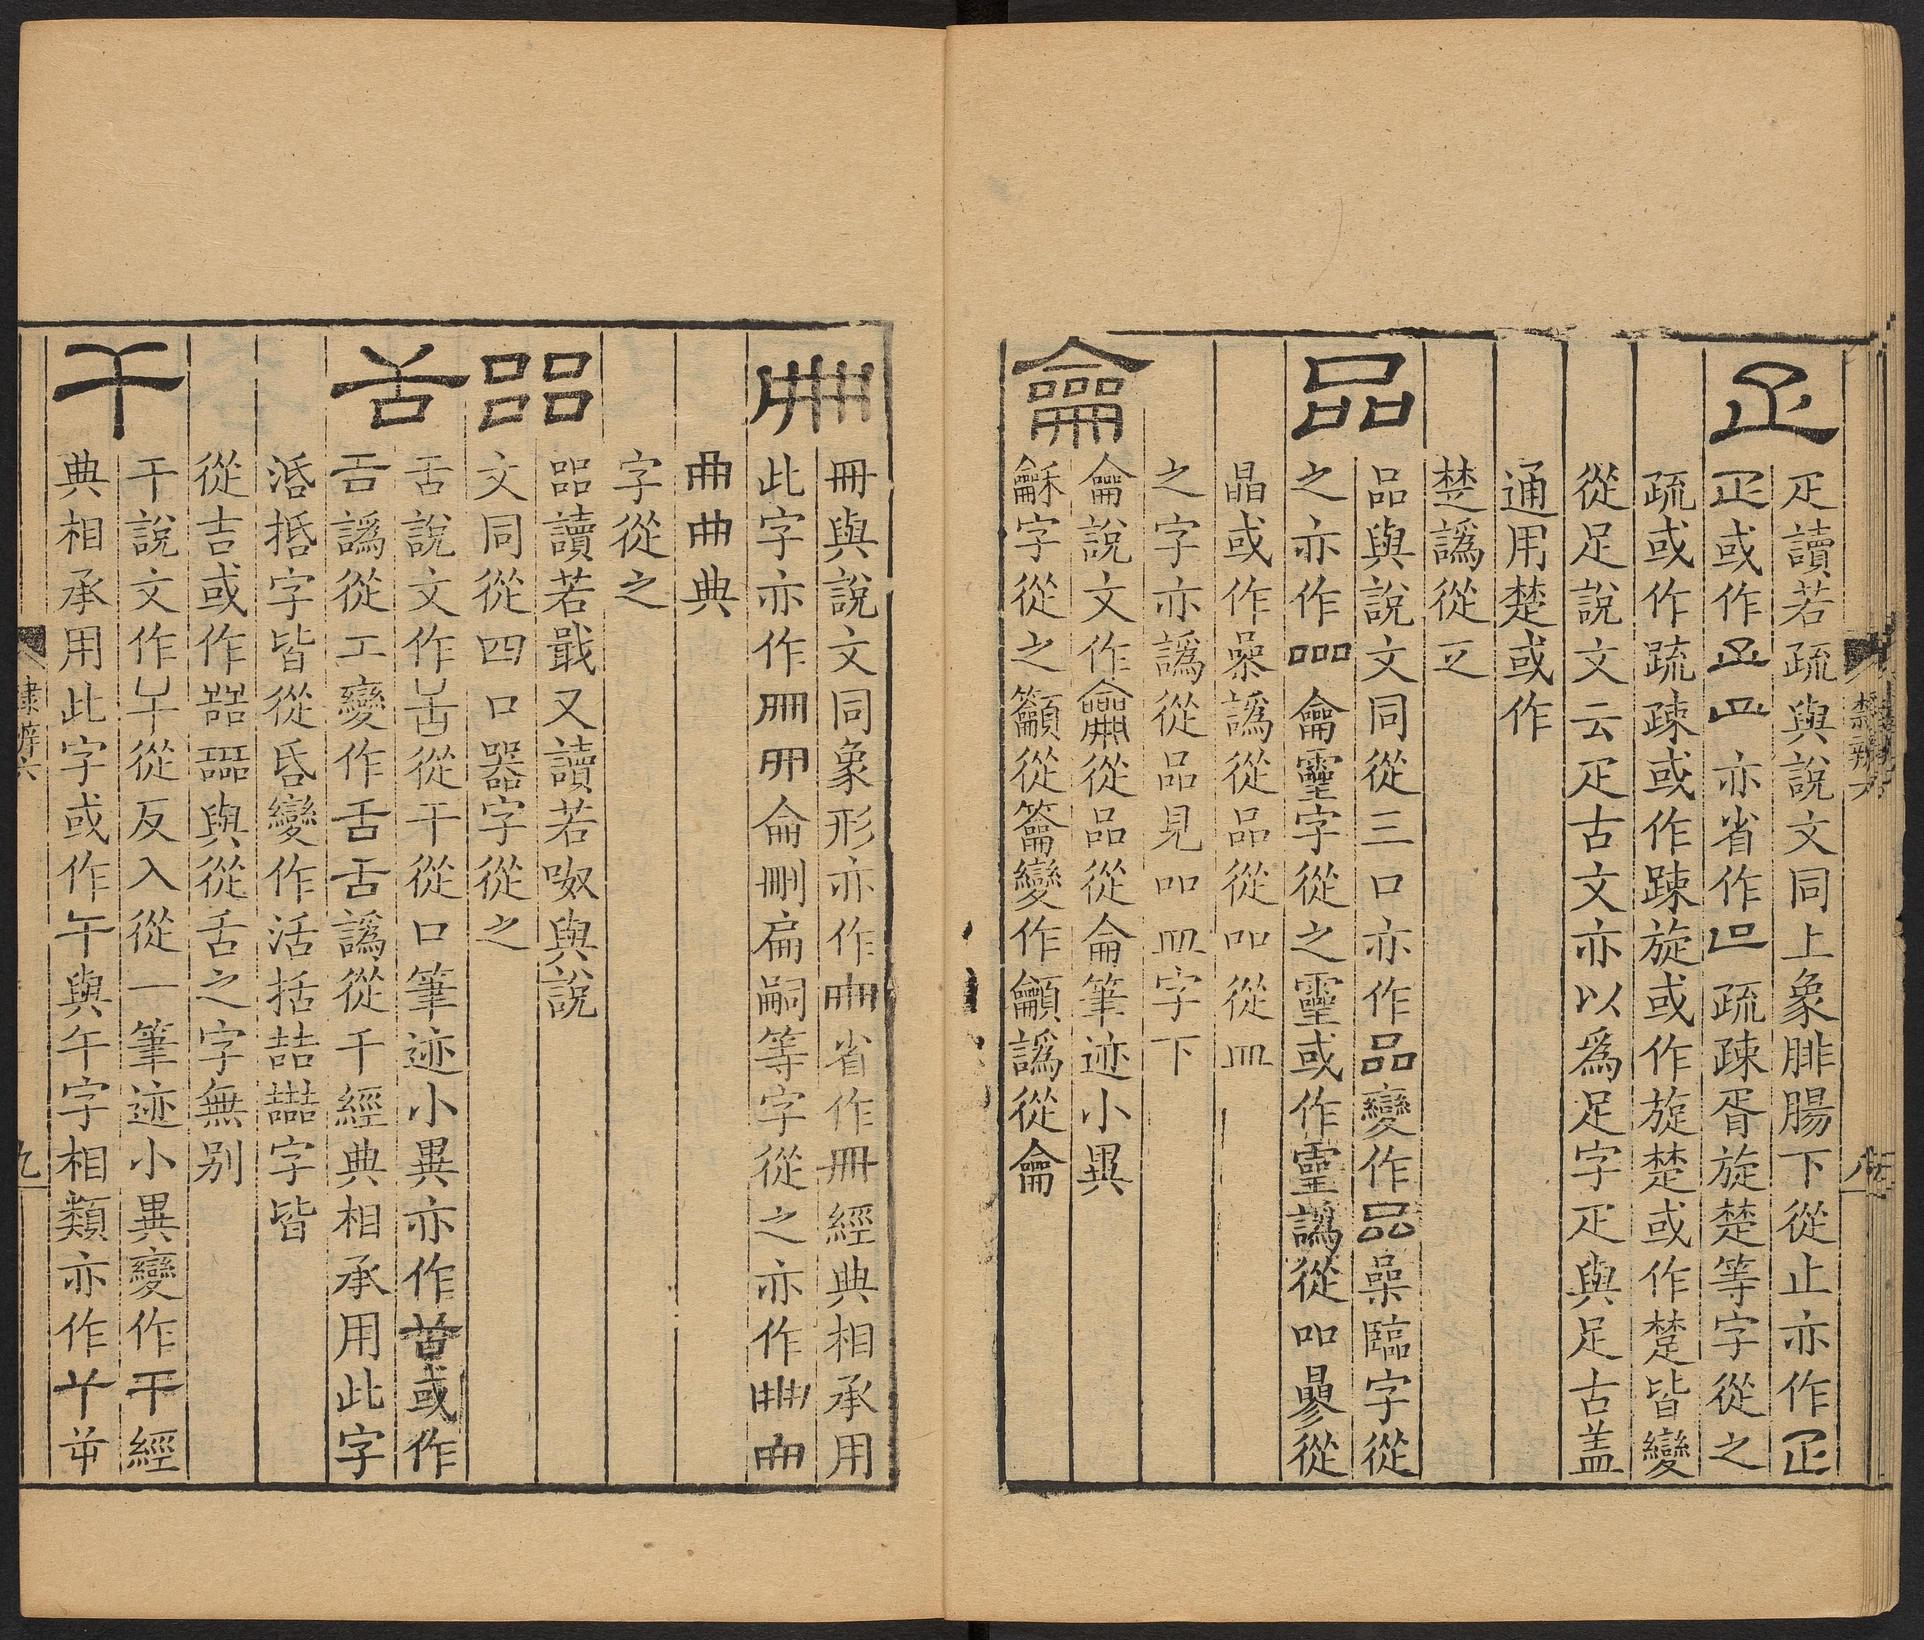 疋
疋讀若疏與說文同上象腓腸下從止亦作
或作亦省作疏疎胥旋楚等字從之
疏或作䟽疎或作踈旋或作旋楚或作椘皆變
從足說文云疋古文亦以爲足字疋與足古盖
通用楚或作
楚譌從
品
品與說文同從三口亦作品變作品喿臨字從
之亦作龠靈字從之靈或作靈譌從吅曑從
晶或作喿譌從品從吅從
之字亦譌從品見吅字下
龠
龠說文作龠從品從侖筆迹小異
龢字從之籲從籥變作龥譌從龠
冊
冊與說文同象形亦作省作冊經典相承用
此字亦作侖刪扁嗣等字從之亦作
典
字從之
㗊
㗊讀若戢又讀若呶與說
文同從四口器字從之
舌
舌說文作從干從口筆迹小異亦作或作
譌從工變作舌舌譌從千經典相承用此字
湉括字皆從昏變作活括喆嚞字皆
從吉或作與從舌之字無別
干
干說文作從反入從一筆迹小異變作干經
典相承用此字或作午與午字相類亦作
隸辨六
八
九